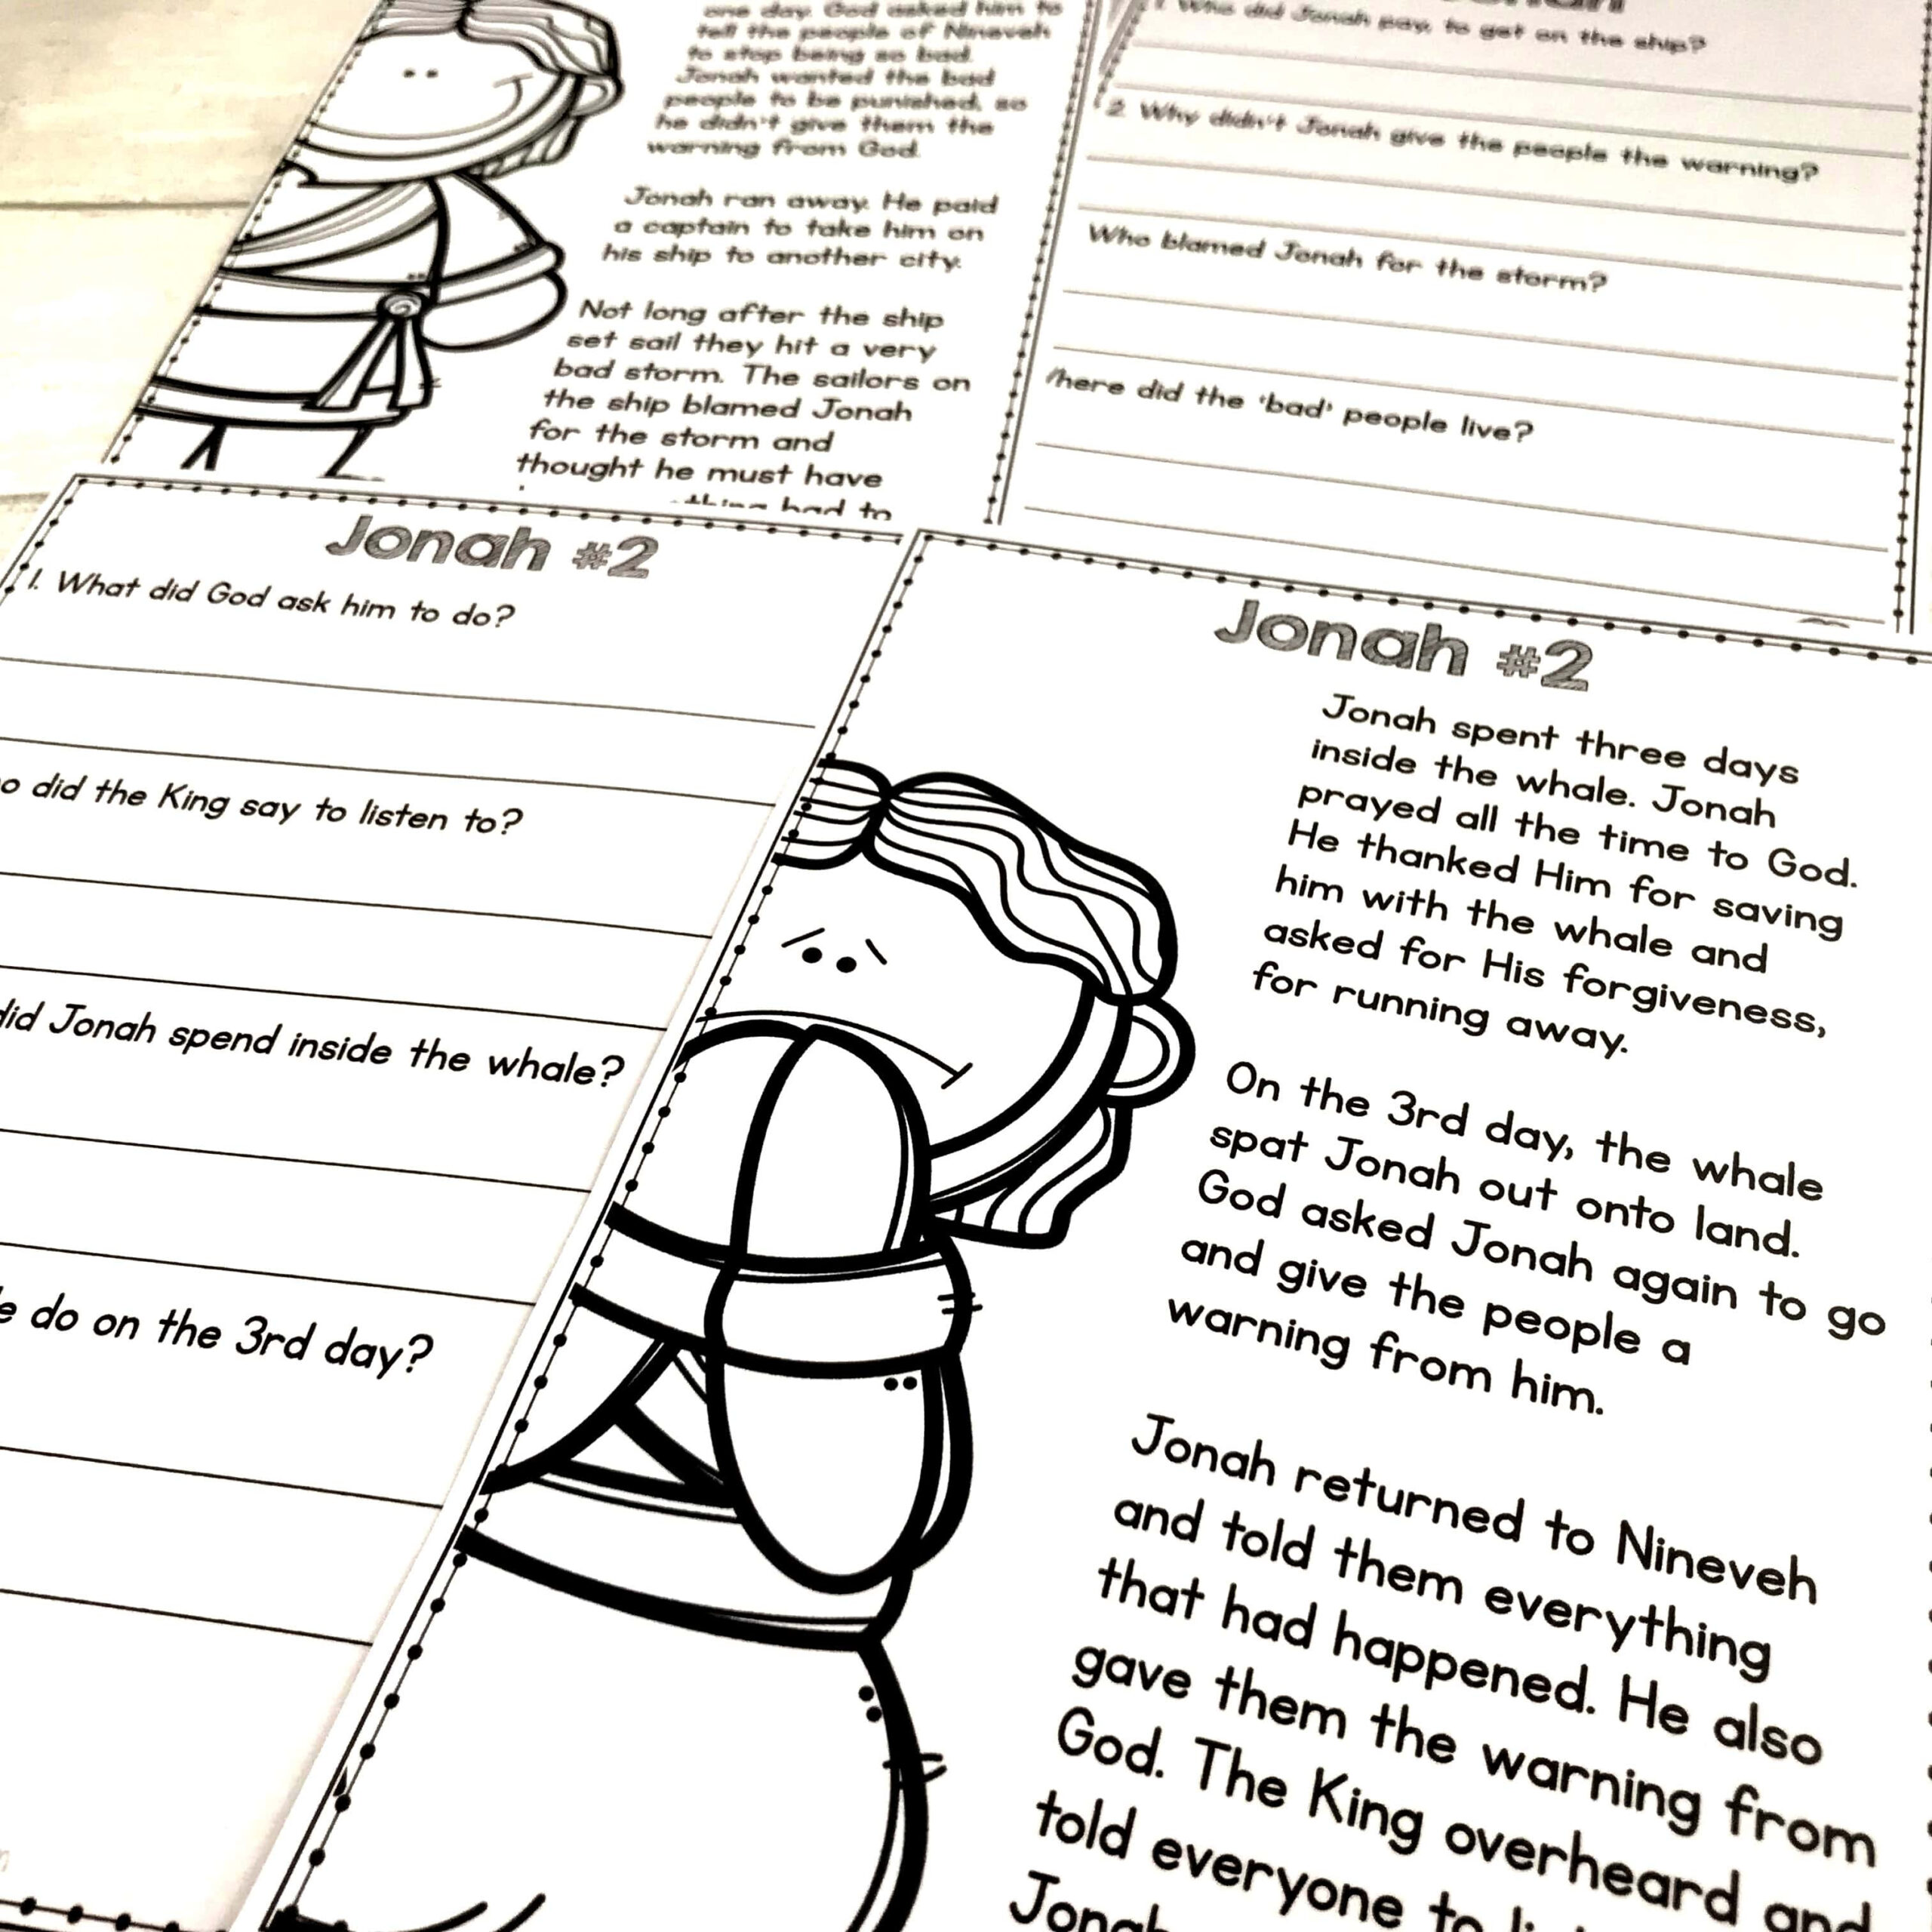 one day. God asked him to
tell the people of Nineveh
to stop being so bad.
Jonah wanted the bad
people to be punished, so
he didn't give them the
warning from God.
Jonah ran away. He paid
a captain to take him on
his ship to another city.
Not long after the ship
set sail they hit a very
bad storm. The sailors on
the ship blamed Jonah
for the storm and
thought he must have
had to
1. Who did Jonah pay, to get on the ship?
2. Why didn't Jonah give the people the warning?
Who blamed Jonah for the storm?
here did the 'bad' people live?
Jonah #2
1. What did God ask him to do?
o did the King say to listen to?
did Jonah spend inside the whale?
e do on the 3rd day?
Jonah #2
Jonah spent three days
inside the whale. Jonah
prayed all the time to God.
He thanked Him for saving
him with the whale and
asked for His forgiveness,
for running away.
On the 3rd day, the whale
spat Jonah out onto land.
God asked Jonah again to go
and give the people a
warning from him.
Jonah returned to Nineveh
and told them everything
that had happened. He also
gave them the warning from
God. The King overheard and
told everyone to
Jonah